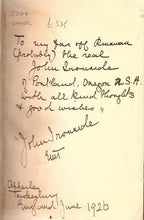 To my far off Kinsman
(probably the real
John Ironside
of Portland, Oregon U.S.A.
with all kind thoughts
& good wishes,
John Ironside
Tewkesbury
England June 1926